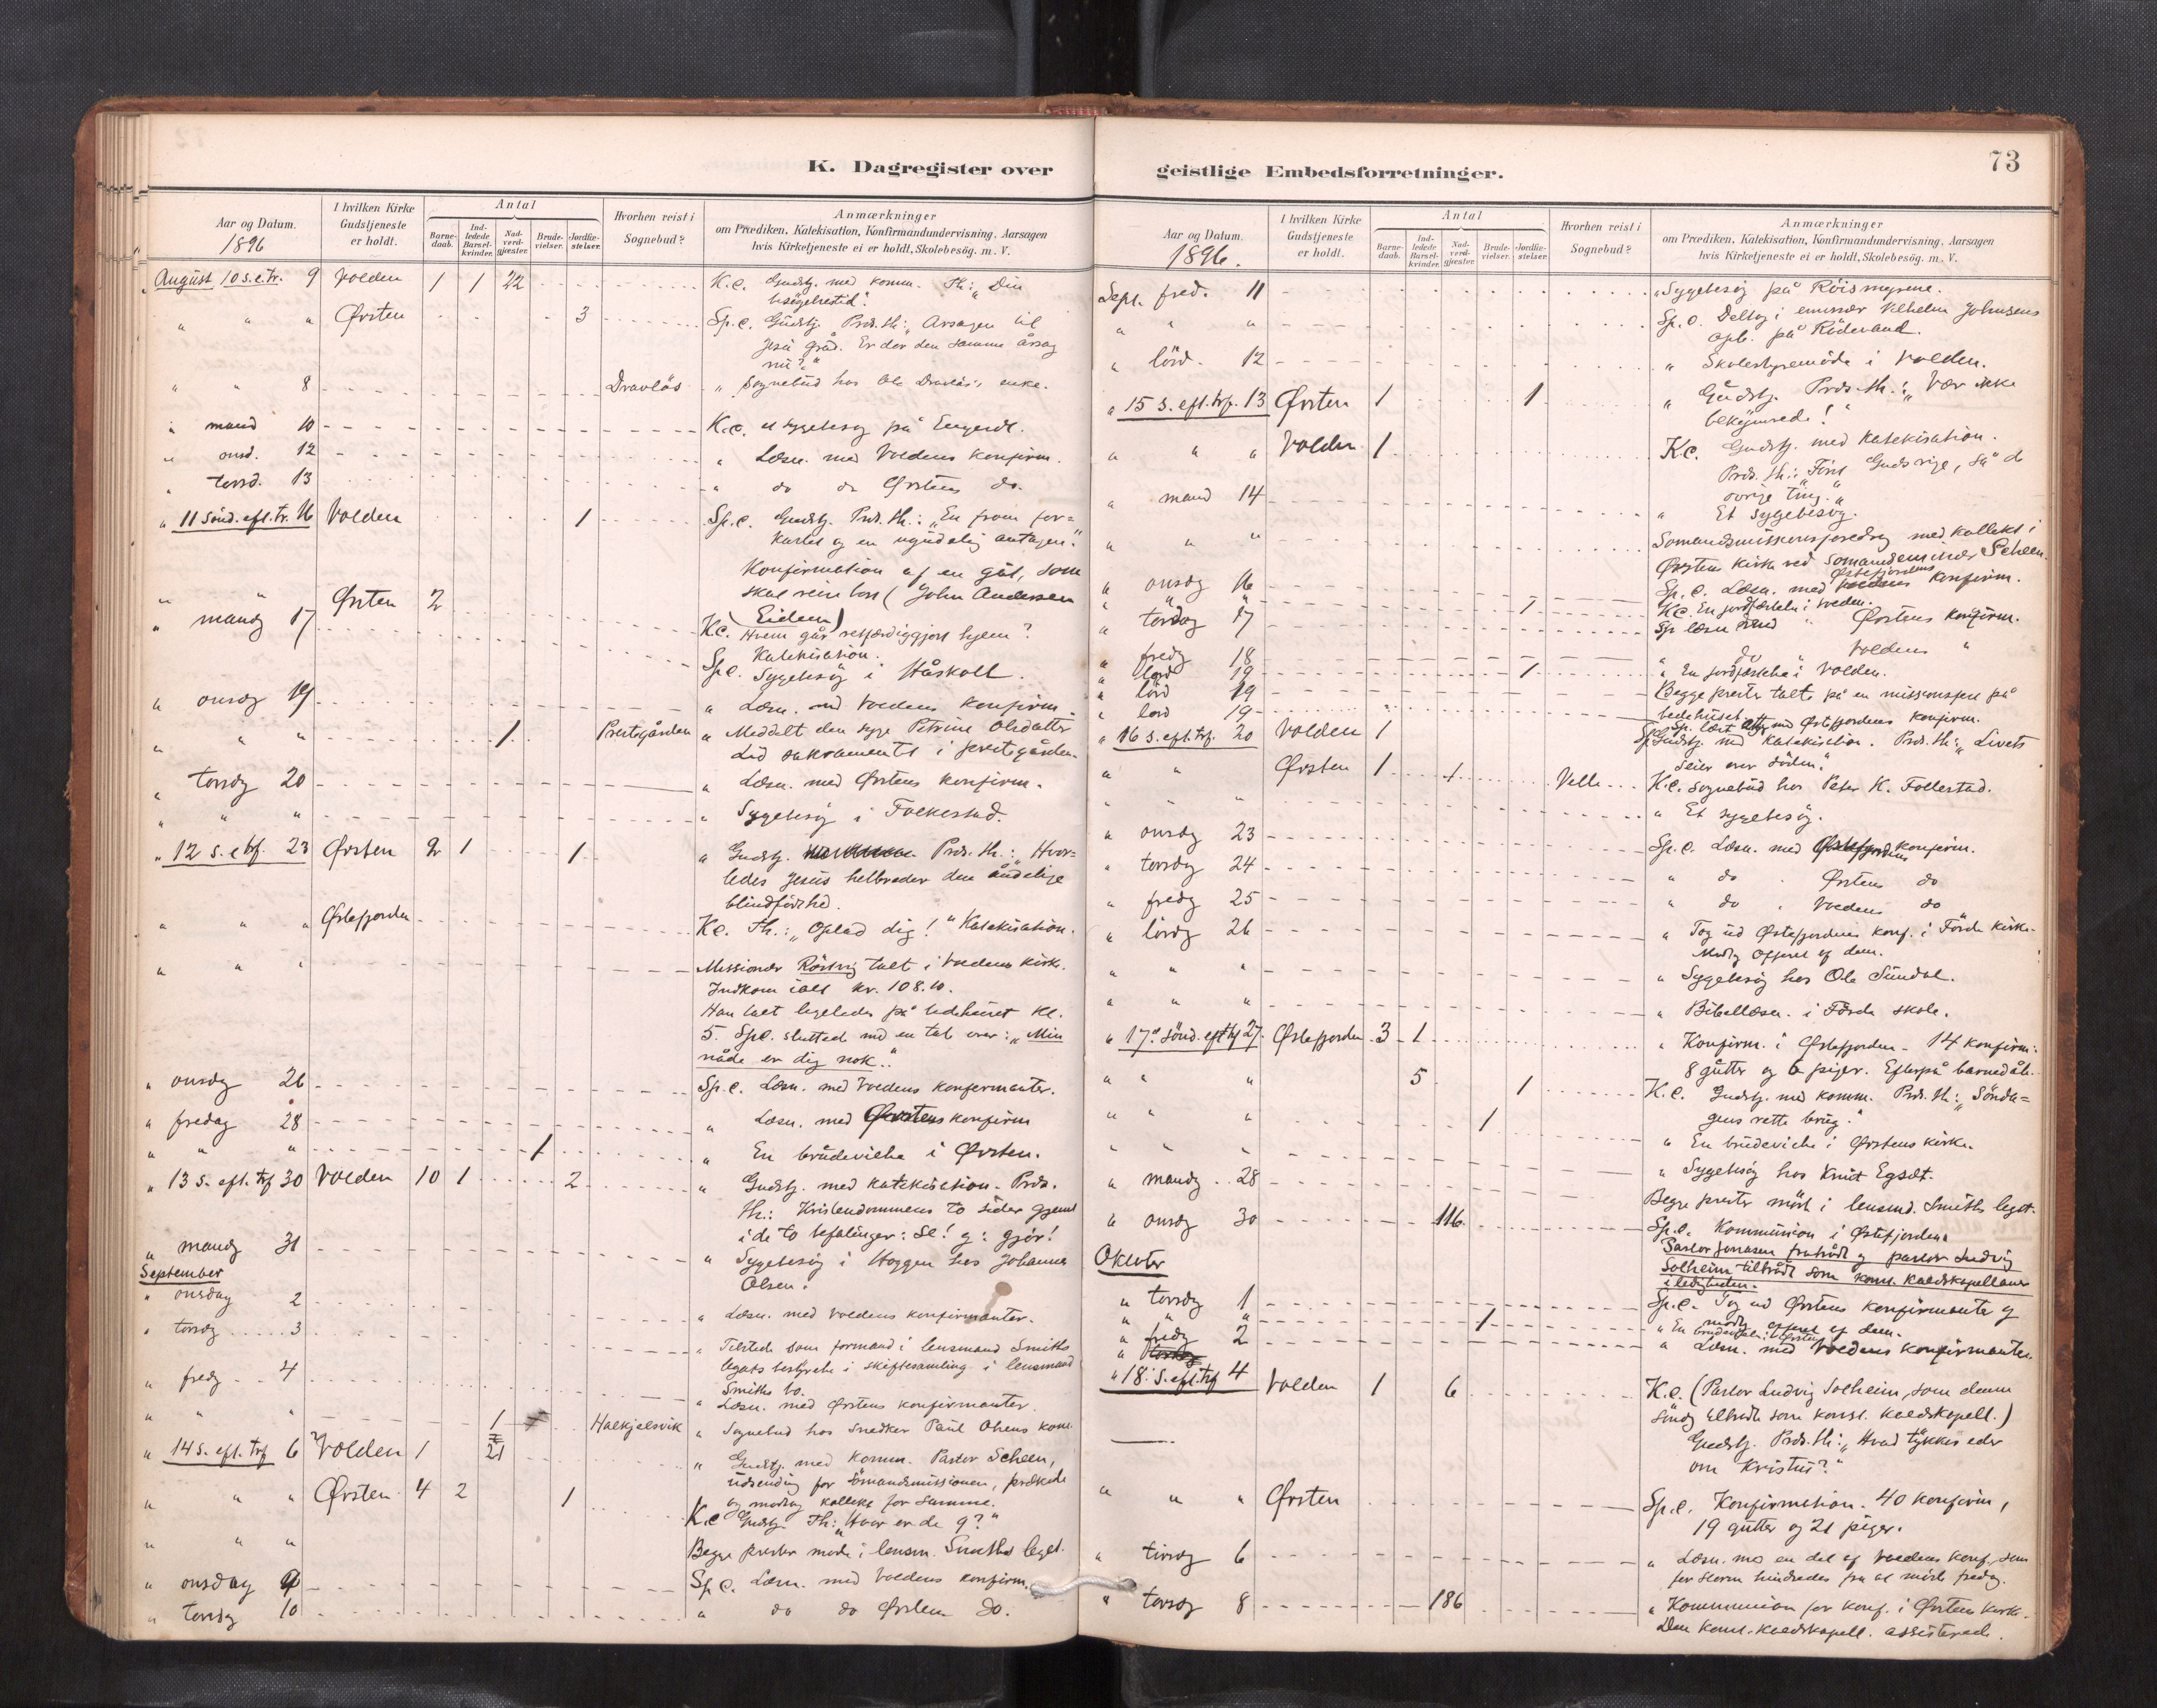 K. Dagregister over
Aar og Datum.
1896
I hvilken Kirke
Gudstjeneste
er holdt.
Antal
Barne-
daab.
Ind-
ledede
Barsel-
kvinder.
Nad-
verd-
gjæster.
Brude-
vielser.
Jordfæ-
stelser.
Hvorhen reist i
Sognebud?
Anmærkninger
om Prædiken, Katekisation, Konfirmandundervisning, Aarsagen
hvis Kirketjeneste ei er holdt, Skolebesög. m. V.
August 10 s.e.tr. 9 Volden 1 1 22 K.c. Gudstj. med komm. Th: „Din
besøgelsestid".
" " " Ørsten 3 Sp.c. Gudstj. Prds. th: „Årsagen til
Jesu gråd. Er der den samme årsag
nu?"
" " 8 Dravlös " Sognebud hos Ole Dravlös's enke.
" mand 10 K.c. et sygebesøg på Engeset.
" onsd. 12 " Læsn. med Voldens konfirm.
" torsd. 13 " do do Ørstens do.
" 11 Sönd. eft. tr. 16 Volden 1 Sp.c. Gudstj. Prds. th.: „En from for=
kastet og en ugudelig antagen."
Konfirmation af en gut, som
skal reise bort (John Andersen
Eidem)
" " Ørsten 2 K.c. Hvem går retfærdiggjort hjem?
Katekisation.
" mandg 17 Sp.c. Sygebesøg i Håskoll.
" onsdg 19 " Læsn. med Voldens konfirm.
" " " 1 Prestegården " Meddelt den syge Petrine Olsdatter
sakramente i prestegården.
" torsdg 20 " Læsn. med Ørstens konfirm.
" " " " Sygebesøg i Folkestad.
" 12 s. e trf. 23 Ørsten 2 1 1 " Gudstj. Prds. th.: „Hvor=
ledes Jesus helbreder den åndelige
blindfödthed.
" " " Østefjorden K.c. Th.: „Oplad dig!" Katekisation.
" " " Missionær Röstvig talt i Voldens kirke.
Indkom ialt kr. 108.10.
Han talt ligeledes på bedehuset kl.
5. Sp.c. slutted med en tale over: „Min
nåde er dig nok."
" onsdg 26 Sp.c. Læsn. med Voldens konfirmanter.
" fredag 28 " Læsn. med Ørstens konfirm
" " " 1 " En brudevielse i Ørsten.
" 13 s. eft. trf 30 Volden 10 1 2 " Gudstj. med katekisation. Prds.
th.: Kristendommens to sider gjemt
i de to befalinger: Se! og: gjör!
" mandg 31 " Sygebesøg i Heggen hos Johannes
Olsen.
September
" onsdag 2 " Læsn. med Voldens konfirmanter.
" torsdg 3 " Tilstede som formand i lensmand Smiths
legats bestyrelse i skiftesamling i lensmand
Smiths bo.
" fredg 4 " Læsn. med Ørstens konfirmanter.
" " " 1 Halkjelsvik " Sognebud hos snedker Paul Olsens kone.
" 14 s. eft. trf 6 Volden 1 21 " Gudstj. med komm. Pastor Scheen,
udsending for sömandsmissionen, prækede
og modtog kollekt for samme.
" " " Ørsten 4 2 1 K.c Gudstj. Th: „Hvor er de 9?"
" " " Begge prester møde i lensm. Smiths legat.
" onsdag 9 Sp.c. Læsn. med Voldens konfirm.
" torsdg 10 " do do Ørsten do.
geistlige Embedsforretninger.
73
Aar og Datum.
1896.
I hvilken Kirke
Gudstjeneste
er holdt.
Antal
Barne-
daab.
Ind-
ledede
Barsel-
kvinder.
Nad-
verd-
gjæster.
Brude-
vielser.
Jordfæ-
stelser.
Hvorhen reist i
Sognebud?
Anmærkninger
om Prædiken, Katekisation, Konfirmandundervisning, Aarsagen
hvis Kirketjeneste ei er holdt, Skolebesög. m. V.
Sept. fred. 11 " Sygebesøg på Röismyrene.
" " " Sp.c. Deltog i emissær Vilhelm Johnsens
opb. på Rödesand.
" lörd. 12 " Skolestyremöde i Volden.
" 15 s. eft. trf. 13 Ørsten 1 1 " Gudstj. Prds. th.: „Vær ikke
bekymrede!"
" " " Volden 1 K.c. Gudstj. med katekisation.
Prds. th.: „Först Guds rige, så de
övrige ting."
" mand 14 " Et sygebesøg.
" " " Sömandsmissionsforedrag med kollekt i
Ørstens kirke ved sömandsmissionær Scheen.
" onsdg 16 Sp.c. Læsn. med Østefjordens konfirm.
" " " 1 K.c. En jordfæstelse i Volden.
" torsdag 17 Sp læsn med " Ørstens konfirm.
" fredg 18 " do " Voldens "
" lörd 19 1 " En jordfæstelse i Volden.
" lörd 19 Begge prester talte på en missionsfest på
bedehuset.
" lörd 19 Sp. læst med Østefjordens konfirm.
" 16 s. eft. trf. 20 Volden 1 Sp. Gudstj. med katekisation. Prds. th: „Livets
seier over döden."
" " Ørsten 1 1 Velle K.c. Sognebud hos Peter K. Follestad.
" " " " Et sygebesøg.
" onsdg 23 Sp.c. Læsn. med Østefjordens konfirm.
" torsdg 24 " do " Ørstens do
" fredg 25 " do " Voldens do
" lördg 26 " Tog ud Østefjordens konf. i Förde kirke.
Modtg offeret af dem.
" " " " Sygebesøg hos Ole Sundal.
" " " " Bibellæsn. i Förde skole.
" 17. sönd. eft trf 27. Østefjorden 3 1 " Konfirm. i Østefjorden - 14 konfirm:
8 gutter og 6 piger. Efterpå barnedåb.
" " " 5 1 K.c. Gudstj. med komm. Prds. th: „Sönda=
gens rette brug."
" " " 1 " En brudevielse i Ørstens kirke.
" " " " Sygebesøg hos Knut Egset.
" mandg 28 Begge prester møtt i lensmd. Smiths legat.
" onsdg 30 116 Sp.c. Kommunion i Østefjorden.
Pastor Jonasen fratrådt og pastor Ludvig
Solheim tiltrådt som konst. kaldskapellan
i ledigheden.
Oktober
" torsdg 1 Sp.c. Tog ud Ørstens konfirmanter og
modtg offeret af dem.
" " " 1 " En brudevielse i Ørsten.
" fredg 2 " Læsn. med Voldens konfirmanter.
" 18. s. eft. trf 4 Volden 1 6 K.c. (Pastor Ludvig Solheim, som denne
söndg tiltrådte som konst. kaldskapell.)
Gudstj. Prds. th: „Hvad tykkes eder
om Kristus?"
" " " Ørsten Sp.c. Konfirmation. 40 konfirm,
19 gutter og 21 piger.
" tirsdg 6 " Læsn. med en del af Voldens konf., som
for storm hindredes fra at möde fredag.
" torsdg 8 186 " Kommunion for konf. i Ørstens kirke.
Den konst. kaldskapell. assisterede.